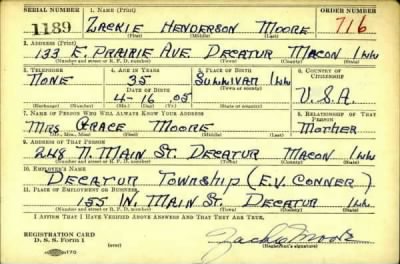 SERIAL NUMBER 1. NAME (Print) ORDER NUMBER
1189 ZACKIE HENDERSON MOORE 716
(First) (Middle) (Last)
2. ADDRESS (Print)
133 E. PRAIRIE AVE. DECATUR MACON ILL
(Number and street or R. F. D. number) (Town) (County) (State)
3. TELEPHONE 4. AGE IN YEARS 5. PLACE OF BIRTH 6. COUNTRY OF CITIZENSHIP
NONE 35 SULLIVAN ILL
DATE OF BIRTH (Town or county)
4-16-05 U.S.A.
(Exchange) (Number) (Mo.) (Day) (Yr.) (State or country)
7. NAME OF PERSON WHO WILL ALWAYS KNOW YOUR ADDRESS 8. RELATIONSHIP OF THAT PERSON
MRS GRACE MOORE MOTHER
(Mr., Mrs., Miss) (First) (Middle) (Last)
9. ADDRESS OF THAT PERSON
248 MAIN ST. DECATUR MACON ILL
(Number and street or R. F. D. number) (Town) (County) (State)
10. EMPLOYER'S NAME
DECATUR TOWNSHIP (E.V. CONNER)
11. PLACE OF EMPLOYMENT OR BUSINESS
155 W. MAIN ST. DECATUR ILL
(Number and street or R. F. D. number) (Town) (County) (State)
I AFFIRM THAT I HAVE VERIFIED ABOVE ANSWERS AND THAT THEY ARE TRUE.
REGISTRATION CARD
D. S. S. Form 1
(over)
Zackie Moore
(Registrant's signature)